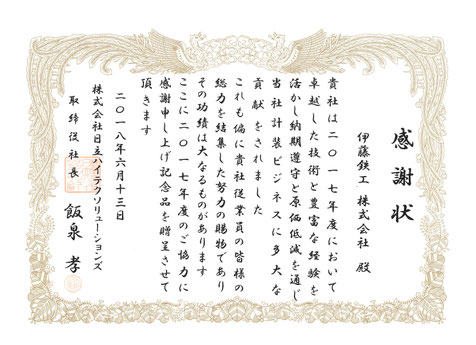 感謝状
伊藤鉄工 株式会社 殿
貴社は二〇一七年度において
卓越した技術と豊富な経験を
活かし納期遵守と原価低減を通じ
当社計装ビジネスに多大な
貢献をされました
これも偏に貴社従業員の皆様の
総力を結集した努力の賜物であり
その功績は大なるものがあります
ここに二〇一七年度のご協力に
感謝申し上げ記念品を贈呈させて
頂きます
二〇一八年六月十三日
株式会社日立ハイテクソリューションズ
取締役社長 飯泉 孝